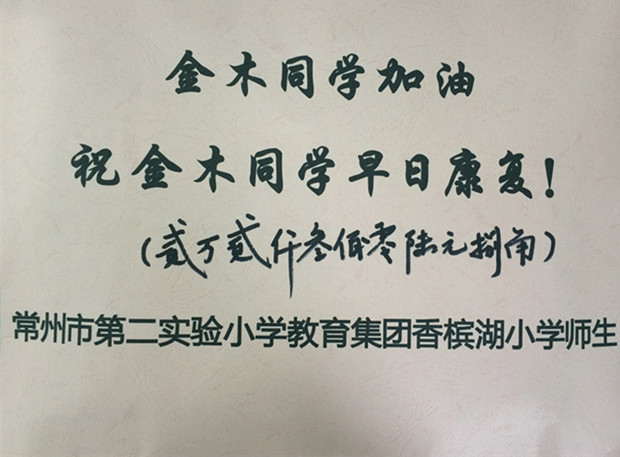 金木同学加油
祝金木同学早日康复！
（贰万贰仟叁佰零陆元捌角）
常州市第二实验小学教育集团香槟湖小学师生